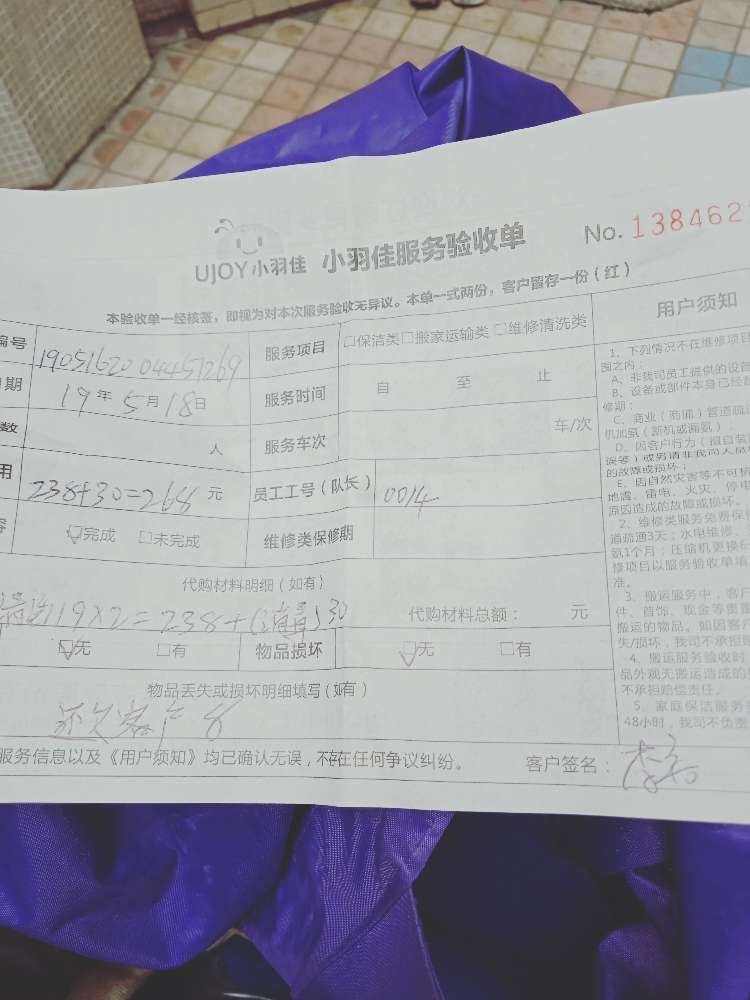 UJOY小羽佳 小羽佳服务验收单 No. 138462
本验收单一经核签，即视为对本次服务验收无异议。本单一式两份，客户留存一份（红）
编号 1905162004451269 服务项目 □保洁类□搬家运输类□维修清洗类
日期 19年5月18日 服务时间 自 至 止
数 人 服务车次 车/次
用 238+30=268 元 员工工号（队长） 0014
容 ☑完成 □未完成 维修类保修期
代购材料明细（如有）
清洗119×2=238+(消毒)30 代购材料总额： 元
☑无 □有 物品损坏 ☑无 □有
物品丢失或损坏明细填写（如有）
还欠客户8
服务信息以及《用户须知》均已确认无误，不存在任何争议纠纷。 客户签名：
用户须知
1、下列情况不在维修项目
围之内：
A、非我司员工提供的设备
B、设备或部件本身已经
修期；
C、商业（商铺）管道疏
机加氨（新机或漏氨）；
D、因客户行为（擅自装
误等）或另请非我司人员
的故障或损坏；
E、因自然灾害等不可抗
地震、雷电、火灾、停电
原因造成的故障或损坏。
2、维修类服务免费保修
道疏通3天；水电维修、
氨1个月；压缩机更换6
修项目以服务验收单填
准。
3、搬运服务中，客户
件、首饰、现金等贵重
搬运的物品。如因客户
失/损坏，我司不承担
4、搬运服务验收时
品外观无搬运造成的
不承担赔偿责任。
5、家庭保洁服务
48小时，我司不负责